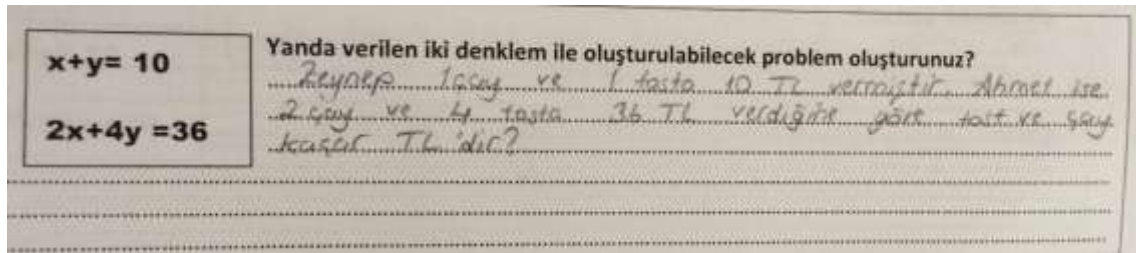 x+y= 10
2x+4y =36
Yanda verilen iki denklem ile oluşturulabilecek problem oluşturunuz?
Zeynep 1 çay ve 1 tosta 10 TL vermiştir. Ahmet ise
2 çay ve 4 tosta 36 TL verdiğine göre tost ve çay
kaçar TL'dir?